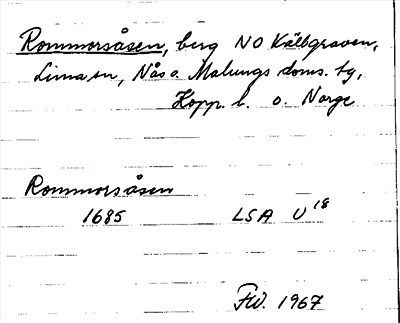 Rommorsåsen, berg NO Källgraven,
Lima sn, Nås o. Malungs doms. tg,
Kopp. l. o. Norge
Rommorsåsen
1685 LSA U 18
FW. 1967